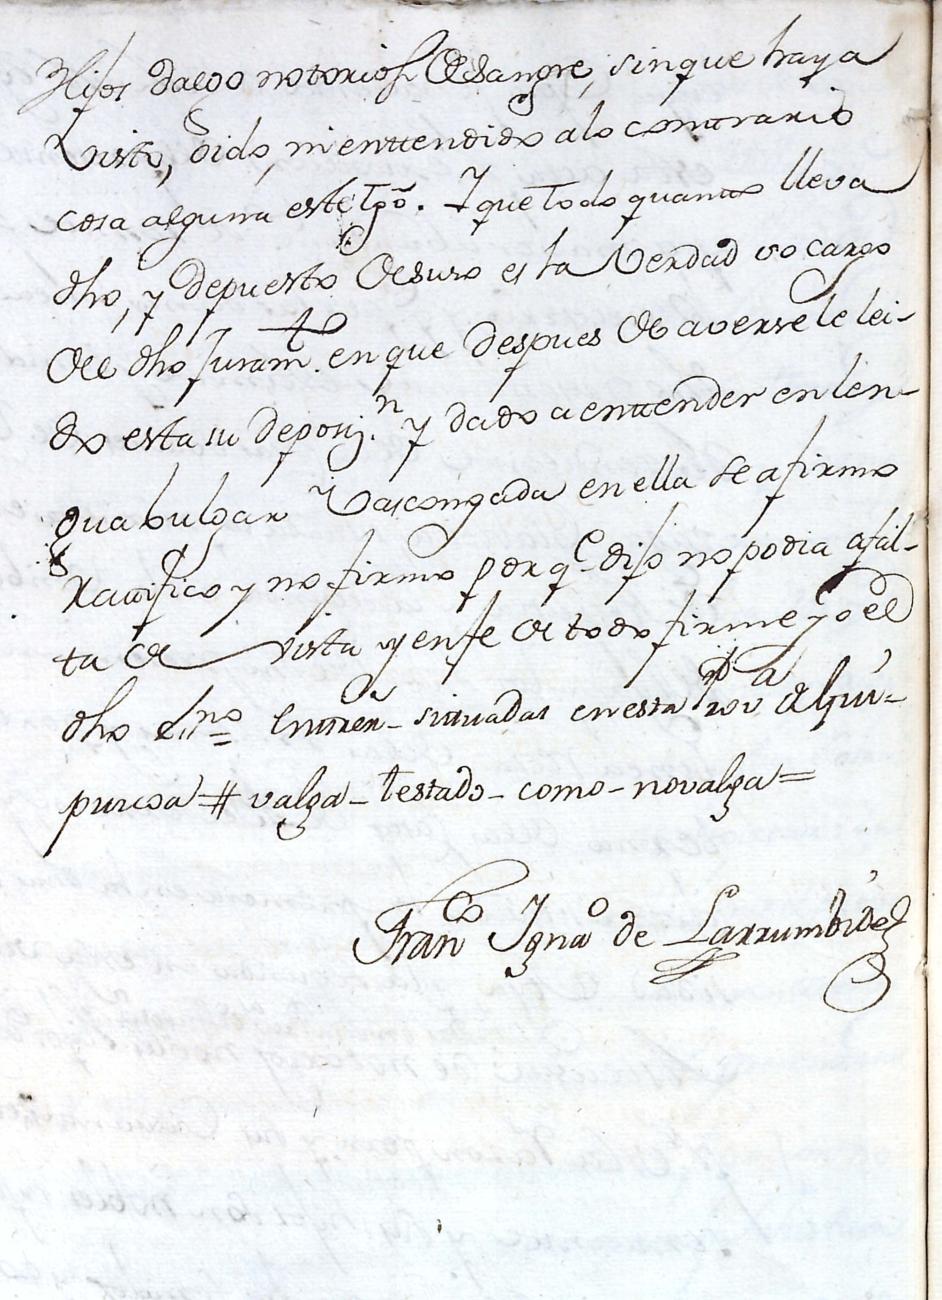 Hijos dalgo notorios de sangre, sin que haya
visto, oido, ni enttendido alo contrario
cosa alguna este tgõ. Y que todo quanto lleva
dho, y depuesto de suso es la verdad vo cargo
del dho juramto. en que despues de averse le lei-
do esta su deposizn. y dado a enttender en len-
gua bulgar Vascongada en ella se afirmo
Ratifico y no firmo porqe. dijo no podia afal-
ta de vista y en fe de todo firme yo el
dho Essno Enttrerr- sittuadas en esta Prova de Guí-
puzcoa # valga - testado - como - no valga =
Franco Ignao de Larrumbide